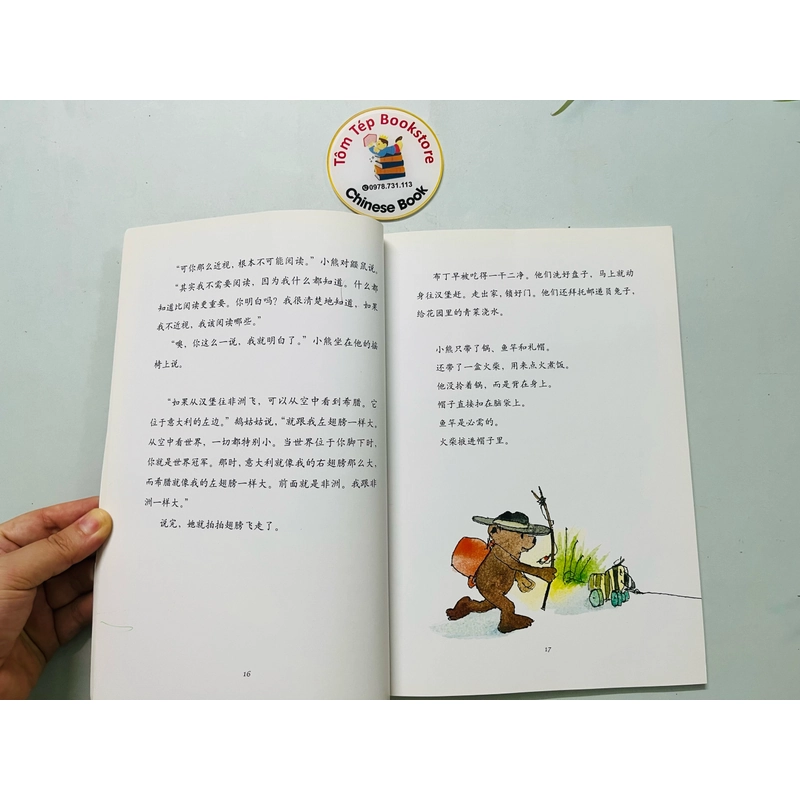 Tôm Tép Bookstore
0978.731.113
Chinese Book
“可你那么近视，根本不可能阅读。”小熊对鼹鼠说。
“其实我不需要阅读，因为我什么都知道。什么都
知道比阅读更重要。你明白吗？我很清楚地知道，如果
我不近视，我该阅读哪些。”
“噢，你这么一说，我就明白了。”小熊坐在他的摇
椅上说。
“如果从汉堡往非洲飞，可以从空中看到希腊。它
位于意大利的左边。”鹤姑姑说，“就跟我左翅膀一样大。
从空中看世界，一切都特别小。当世界位于你脚下时，
你就是世界冠军。那时，意大利就像我的右翅膀那么大，
而希腊就像我的左翅膀一样大。前面就是非洲。我跟非
洲一样大。”
说完，她就拍拍翅膀飞走了。
16
布丁早被吃得一干二净。他们洗好盘子，马上就动
身往汉堡赶。走出家，锁好门。他们还拜托邮递员兔子，
给花园里的青菜浇水。
小熊只带了锅、鱼竿和礼帽。
还带了一盒火柴，用来点火煮饭。
他没拎着锅、而是背在身上。
帽子直接扣在脑袋上。
鱼竿是必需的。
火柴掖进帽子里。
17